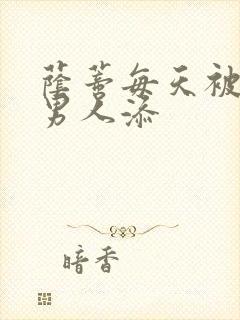 蔭蒂每天被
男人添
暗香